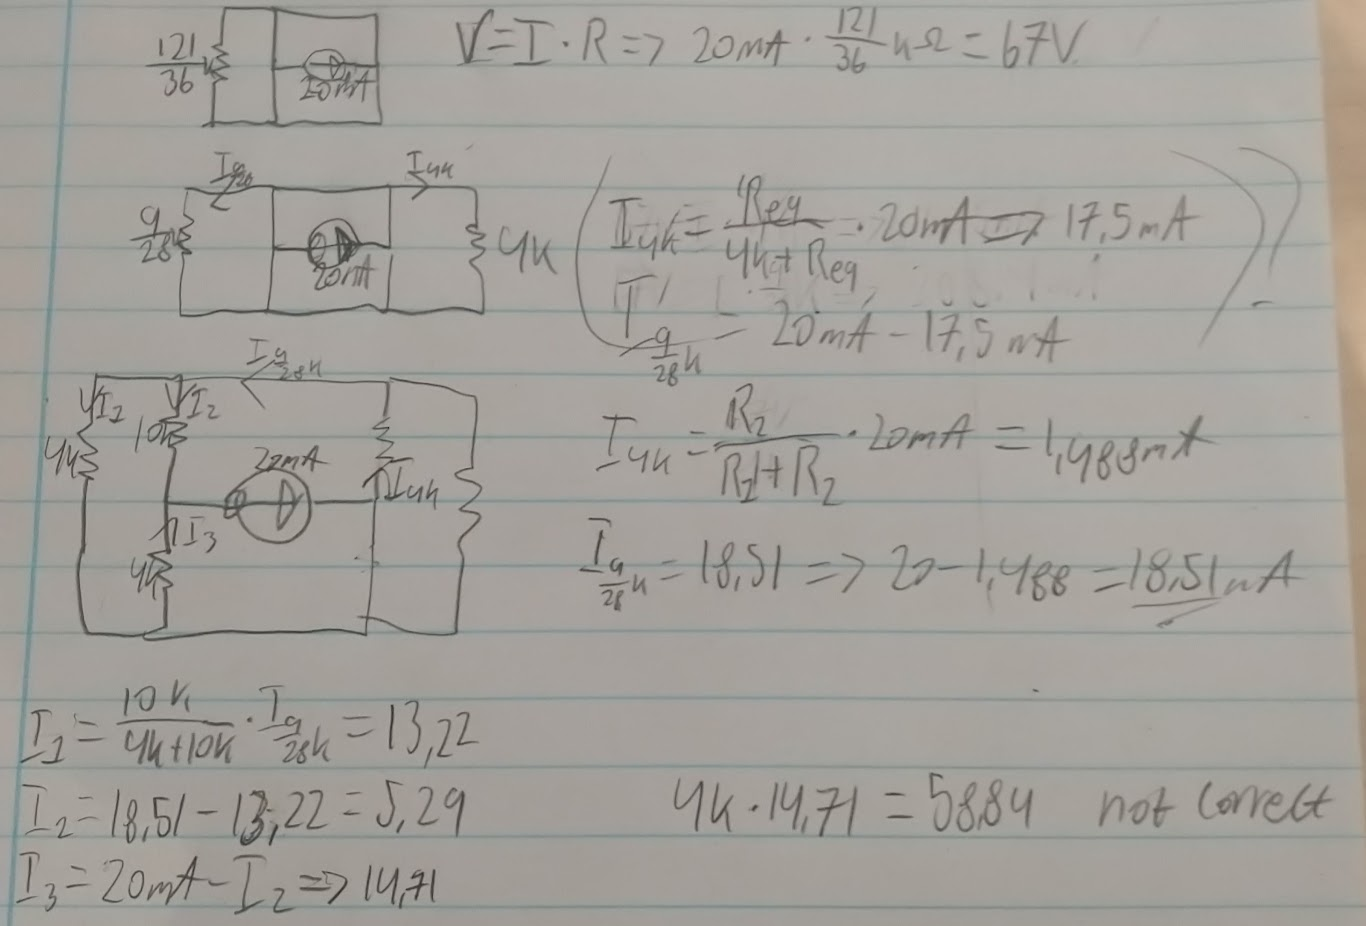 121/36 k
20mA
V = I · R => 20mA · 121/36 kΩ = 67V
I9/28
I4k
9/28 k
20mA
4k
I4k = Req/4k+Req · 20mA => 17,5mA
I9/28k = 20mA - 17,5mA
?
I9/28k
I1
I2
4k
10k
20mA
I4k
I3
4k
I4k = R2/R1+R2 · 20mA = 1,488mA
I9/28k = 18,51 => 20-1,488 = 18,51mA
I1 = 10k/4k+10k · I9/28k = 13,22
I2 = 18,51 - 13,22 = 5,29
4k · 14,71 = 58,84 not correct
I3 = 20mA - I2 => 14,71